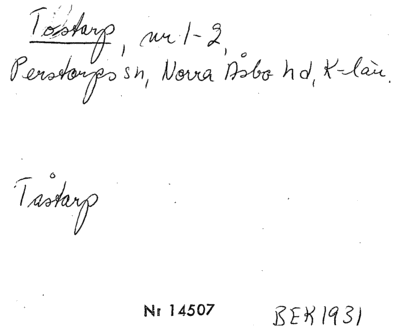 Tostarp, nr 1-2,
Perstorps sn, Norra Åsbo hd, K-län.
Tåstarp
Nr 14507 BEK 1931